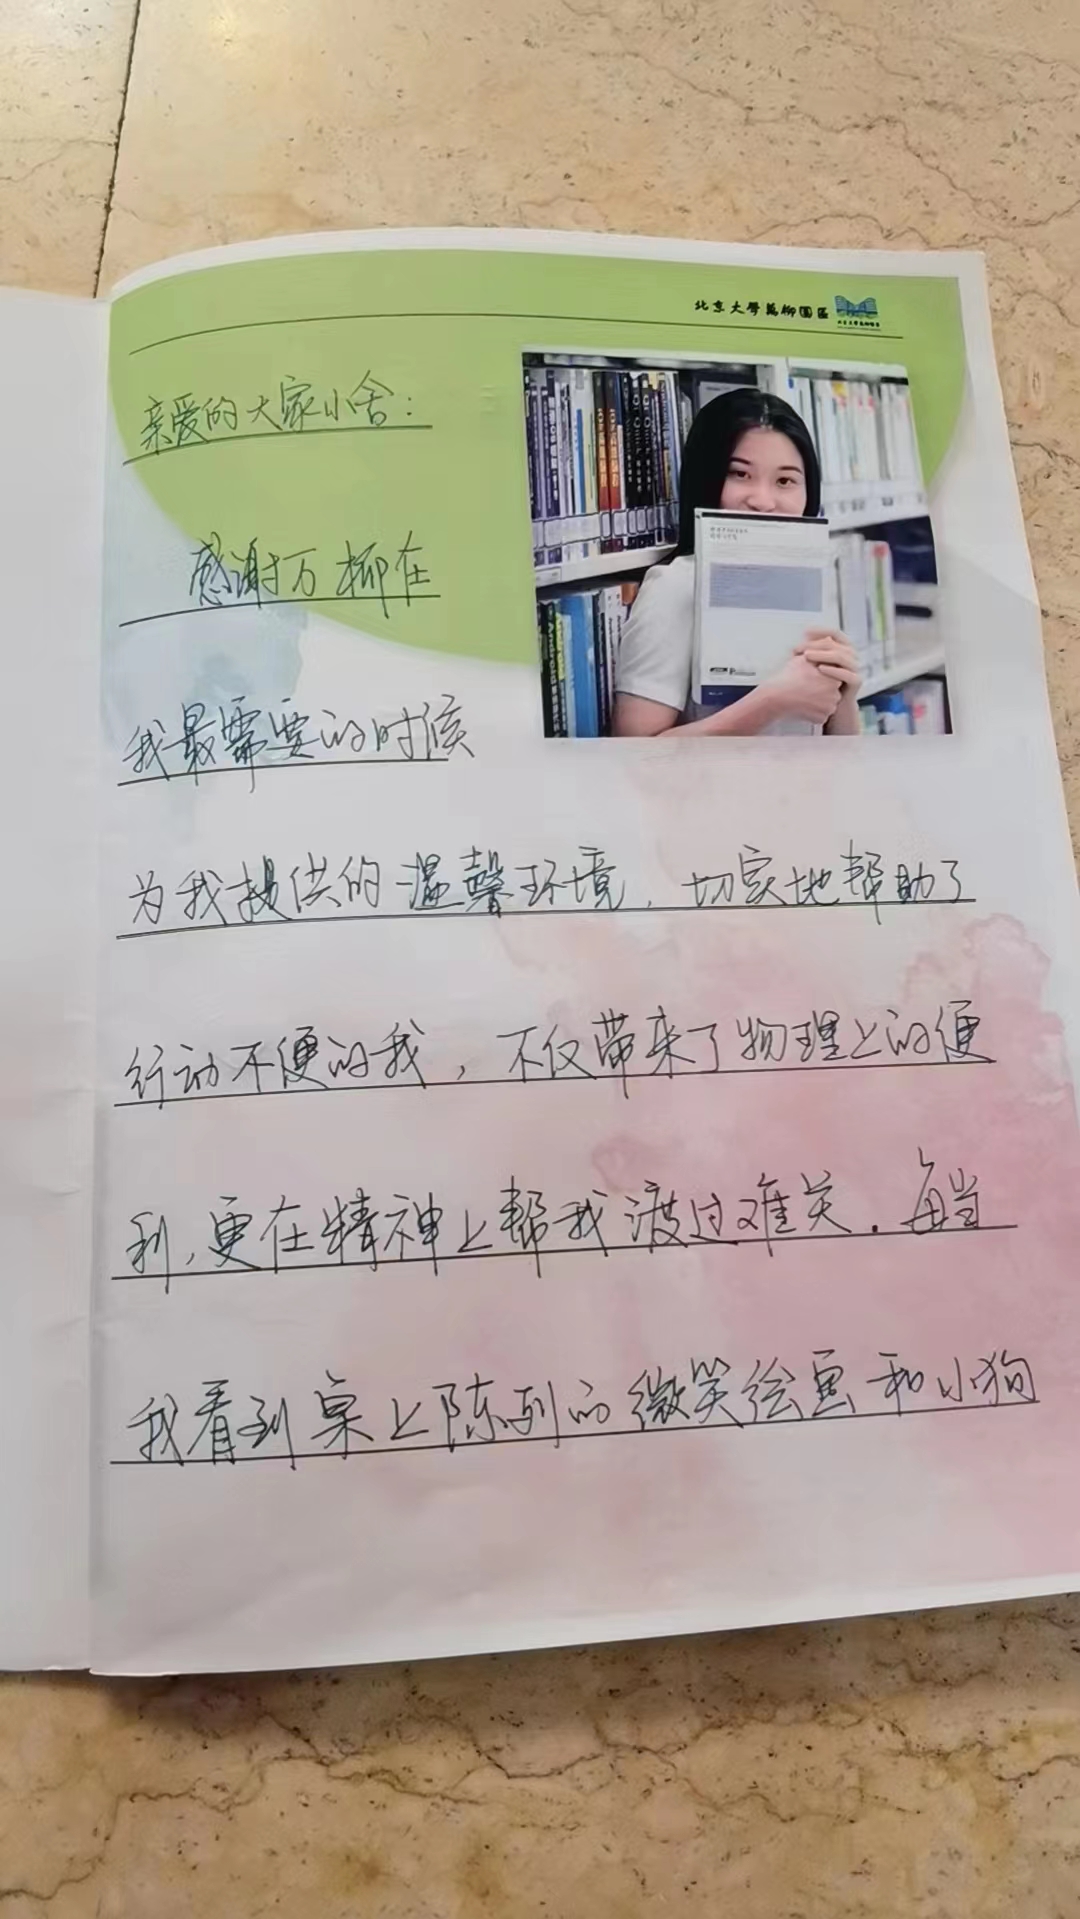 北京大學萬柳園區
亲爱的大家小舍：
感谢万柳在
我最需要的时候
为我提供的温馨环境，切实地帮助了
行动不便的我，不仅带来了物理上的便
利，更在精神上帮我渡过难关。每当
我看到桌上陈列的微笑绘画和小狗